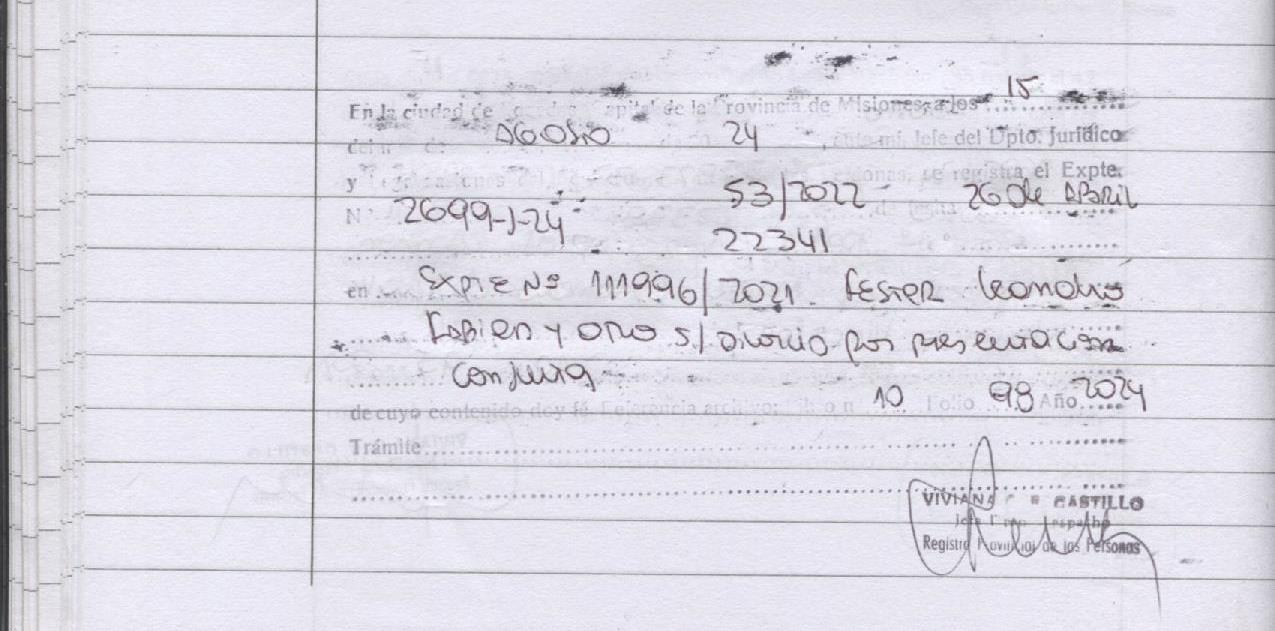 En la ciudad de Capital de la Provincia de Misiones, a los 15
del mes de AGOSTO 24, ante mi, Jefe del Dpto. Juridico
y se registra el Expte.
N° 2699-J-24 53/2022 - de fecha 26 de ABRIL
22341
en EXPTE Nº 111996/2021. Leandro
Fabian y OTRO S/ Divorcio por presentacion
conjunta
de cuyo contenido doy fé. Referencia archivo: Libro n 10 Folio 98 Año 2024
Trámite
VIVIANA CASTILLO
Jefe Dpto Despacho
Registro Provincial de las Personas